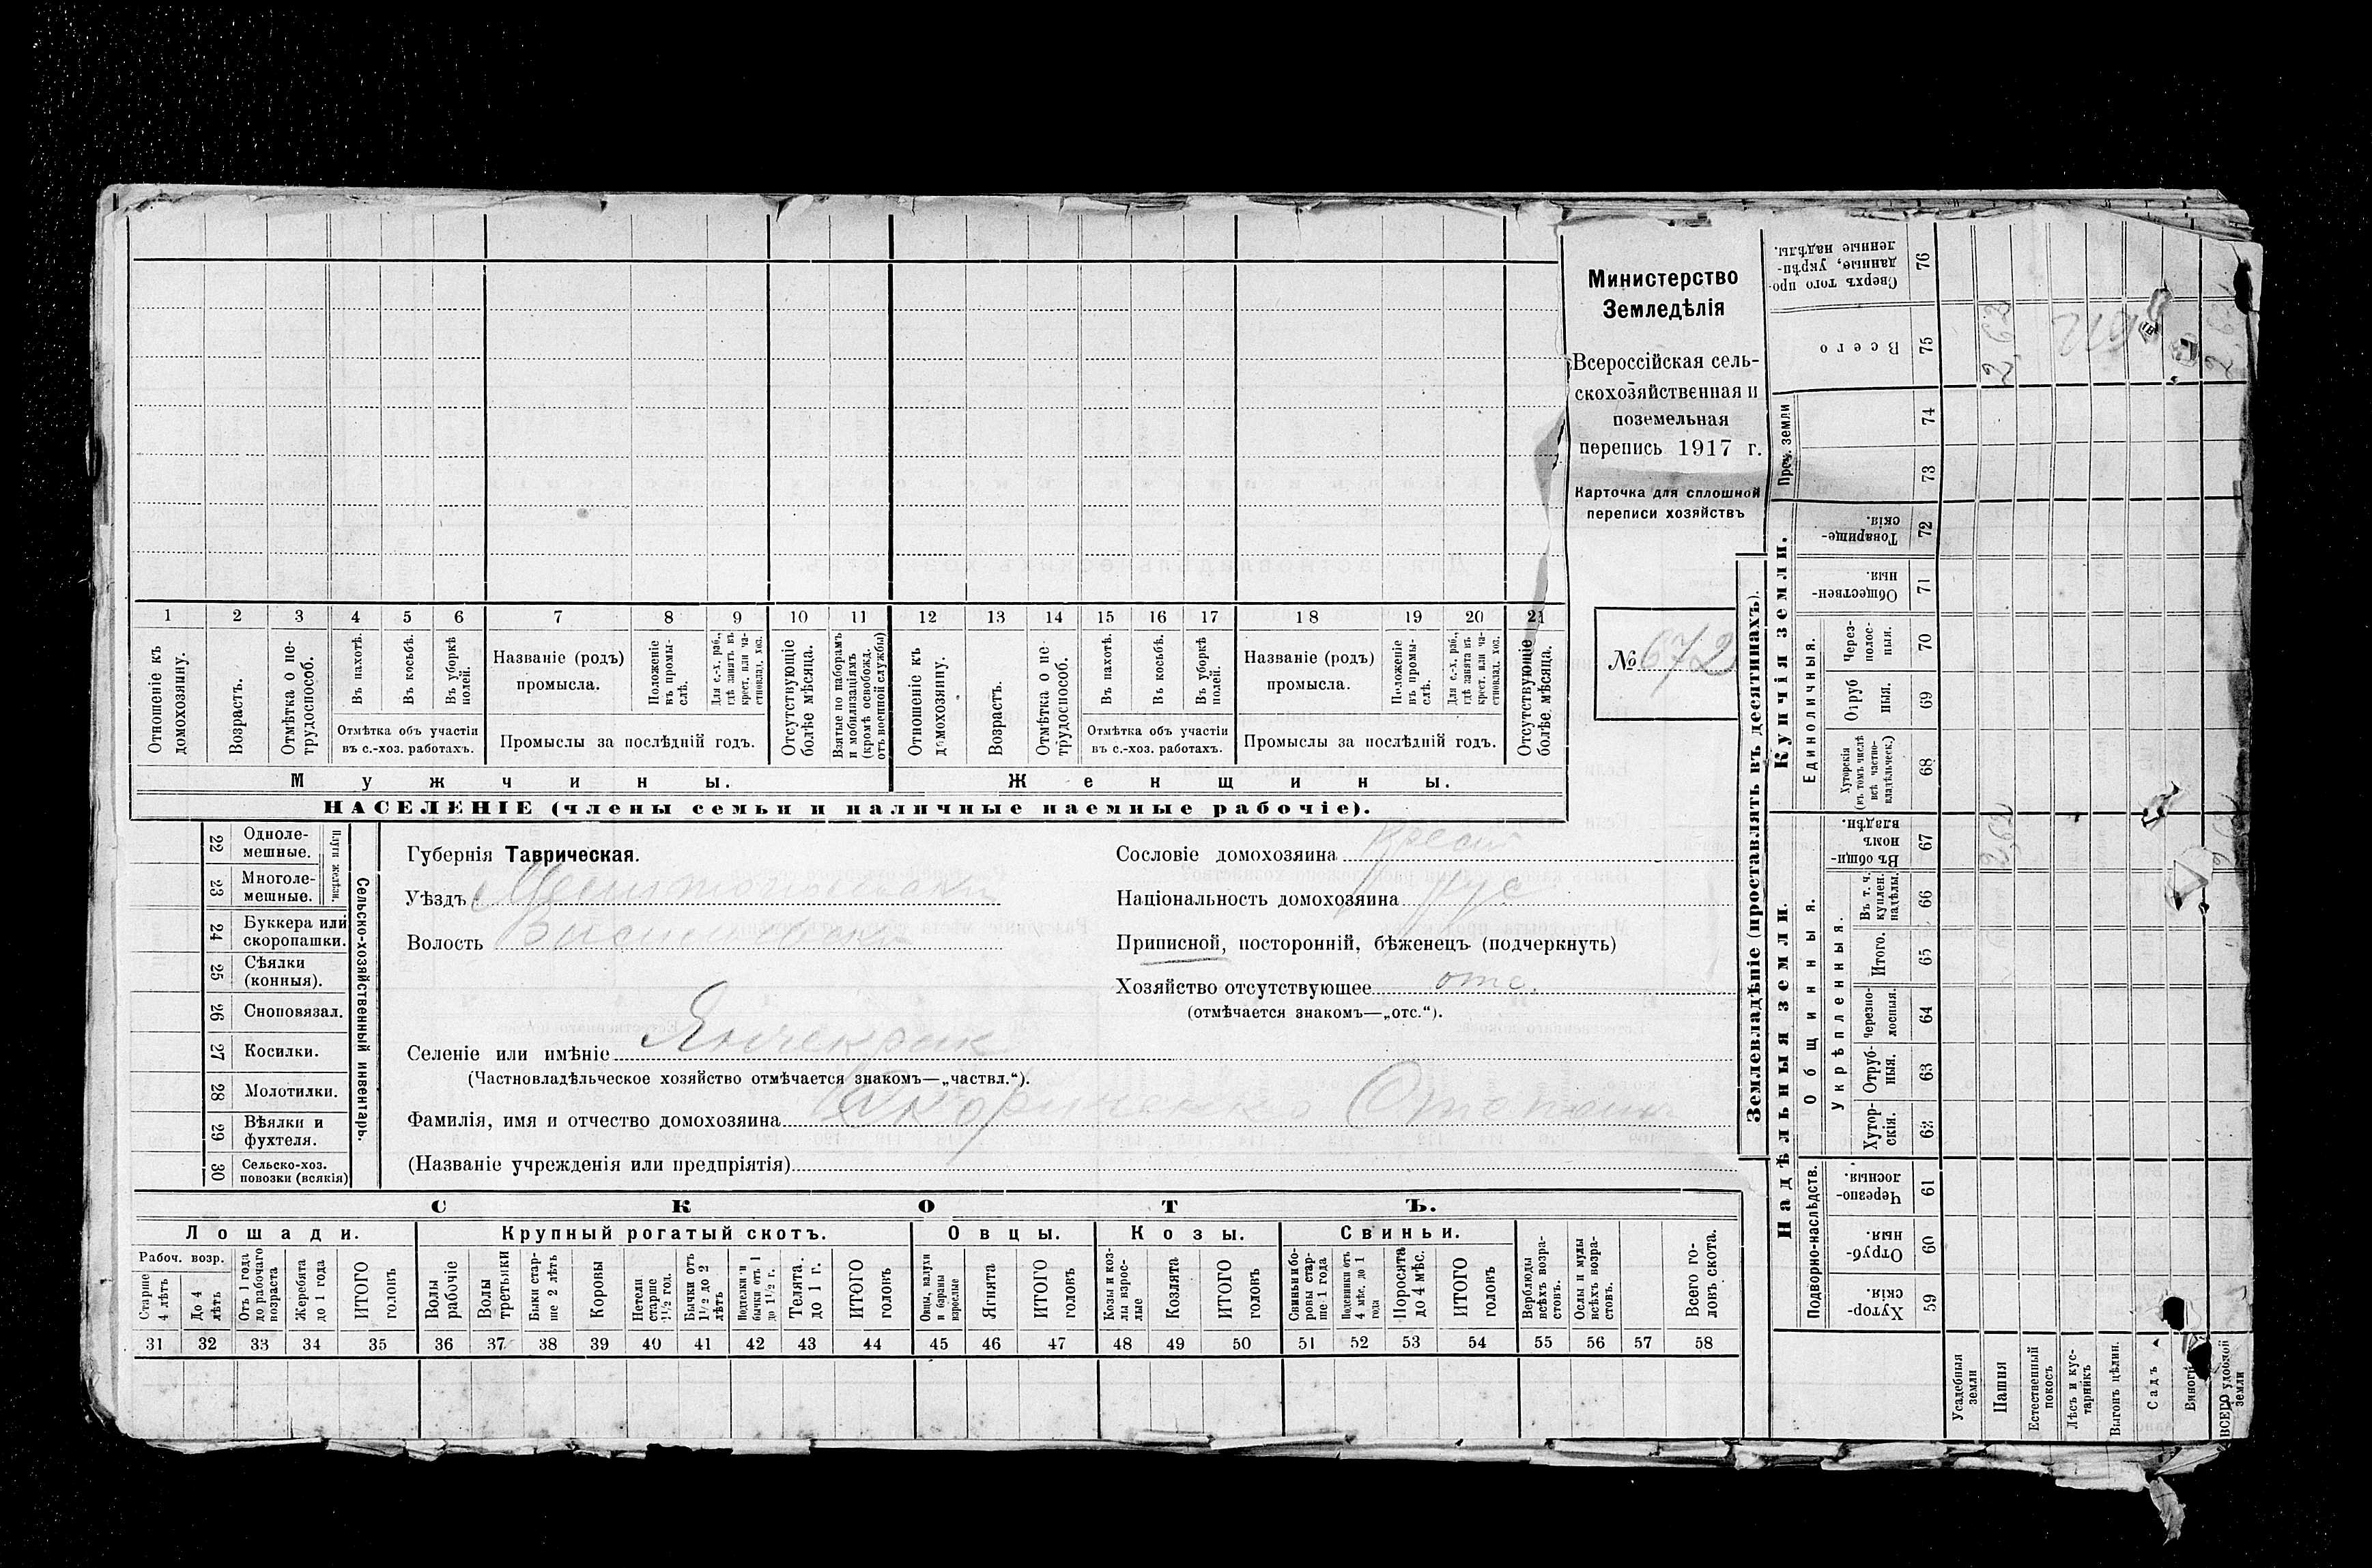 Министерство
Земледѣлія
Всероссійская сель-
скохозяйственная и
поземельная
перепись 1917 г.
Карточка для сплошной
переписи хозяйствъ
№ 672
1 2 3 4 5 6 7 8 9 10 11 12 13 14 15 16 17 18 19 20 21
Отношеніе къ домохозяину.
Возрастъ.
Отмѣтка о не-трудоспособ.
Въ пахотѣ.
Въ косьбѣ.
Въ уборкѣ полей.
Отмѣтка объ участіи
въ с.-хоз. работахъ.
Названіе (родъ)
промысла.
Положеніе въ промы-слѣ.
Для с.-х. раб., гдѣ занятъ въ крест. или ча-стновлад. хоз.
Промыслы за послѣдній годъ.
Отсутствующіе болѣе мѣсяца.
Взятые по наборамъ и мобилизаціямъ (кромѣ освобожд. отъ военной службы)
Отношеніе къ домохозяину.
Возрастъ.
Отмѣтка о не-трудоспособ.
Въ пахотѣ.
Въ косьбѣ.
Въ уборкѣ полей.
Отмѣтка объ участіи
въ с.-хоз. работахъ.
Названіе (родъ)
промысла.
Положеніе въ промы-слѣ.
Для с.-х. раб., гдѣ занята въ крест. или ча-стновлад. хоз.
Промыслы за послѣдній годъ.
Отсутствующіе болѣе мѣсяца.
Мужчины.
Женщины.
НАСЕЛЕНІЕ (члены семьи и наличные наемные рабочіе).
22 Одноле-мешные.
23 Многоле-мешные.
Плуги желѣзн.
24 Буккера или скоропашки.
25 Сѣялки (конныя).
26 Сноповязал.
27 Косилки.
28 Молотилки.
29 Вѣялки и фухтеля.
30 Сельско-хоз. повозки (всякія)
Сельско-хозяйственный инвентарь.
Губернія Таврическая.
Уѣздъ Мелитопольскій
Волость Васильевская
Селеніе или имѣніе Янчекрак
(Частновладѣльческое хозяйство отмѣчается знакомъ—„частвл.“).
Фамилія, имя и отчество домохозяина
(Названіе учрежденія или предпріятія)
Сословіе домохозяина крест
Національность домохозяина рус
Приписной, посторонній, бѣженецъ (подчеркнуть)
Хозяйство отсутствующее отс.
(отмѣчается знакомъ—„отс.“).
СКОТЪ.
Лошади.
Крупный рогатый скотъ.
Овцы.
Козы.
Свиньи.
Рабоч. возр.
Старше 4 лѣтъ
До 4 лѣтъ
Отъ 1 года до рабочаго возраста
Жеребята до 1 года
ИТОГО головъ
Волы рабочіе
Волы третьяки
Быки стар-ше 2 лѣтъ
Коровы
Нетели старше 1½ гол.
Бычки отъ 1½ до 2 лѣтъ
Подтелки и бычки отъ 1 до 1½ г.
Телята. до 1 г.
ИТОГО головъ
Овцы, валухи и бараны взрослые
Ягнята
ИТОГО головъ
Козы и коз-лы взрос-лые
Козлята
ИТОГО головъ
Свиньи и бо-ровы стар-ше 1 года
Подсвинки отъ 4 мѣс. до 1 года
Поросята до 4 мѣс.
ИТОГО головъ
Верблюды всѣхъ возра-стовъ.
Ослы и мулы всѣхъ возра-стовъ.
Всего го-ловъ скота.
31 32 33 34 35 36 37 38 39 40 41 42 43 44 45 46 47 48 49 50 51 52 53 54 55 56 57 58
Землевладѣніе (проставлять въ десятинахъ).
Надѣльныя земли.
Купчія земли.
Проч. земли
Подворно-наслѣдств.
Общинныя.
Укрѣпленныя.
Единоличныя.
Сверхъ того про-данные, укрѣп-ленные надѣлы. 76
Всего 75 2,63
74
73
Товарище-скія. 72
Обществен-ныя 71
Через-полос-ныя. 70
Отруб ныя. 69
Хуторскія (въ томъ числѣ всѣ частно-владѣльческ.) 68
Въ общин-номъ владѣн. 67
Въ т. ч. куплен. надѣлы. 66
Итого. 65
Черезпо-лосныя. 64
Отруб-ныя. 63
Хутор-скія. 62
Черезпо-лосныя. 61
Отруб-ныя. 60
Хутор-скія. 59
Усадебныя земли
Пашня
Естественный покосъ
Лѣсъ и кус-тарникъ
Выгонъ цѣлин.
Садъ
ВСЕГО удобной земли